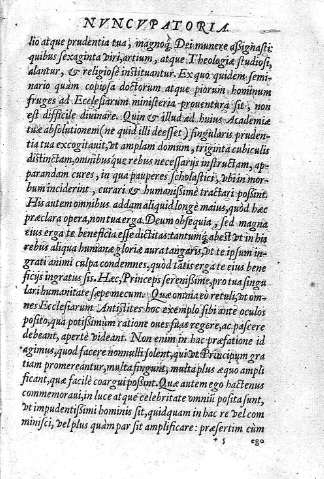 NVNCVPATORIA.
lio atque prudentia tua, magnoq; Dei munere aßignasti:
quibus sexaginta viri, artium, atque Theologiæ studiosi,
alantur, & religiosè instituantur. Ex quo quidem semi-
nario quàm copiosa doctorum atque piorum hominum
fruges ad Ecclesiarum ministeria prouentura sit, non
est difficile diuinare. Quin & illud ad huius Academiæ
tuæ absolutionem (ne quid illi deesset) singularis pruden-
tia tua excogitauit, vt amplam domum, triginta cubiculis
distinctam, omnibusque rebus necessarijs instructam, ap-
parandam cures, in qua pauperes scholastici, vbi in mor-
bum inciderint, curari & humanißimè tractari poßint.
His autem omnibus addam aliquid longè maius, quòd hæc
præclara opera, non tua erga Deum obsequia, sed magna
eius erga te beneficia esse dictitas: tantumq; abest vt in his
rebus aliqua humanæ gloriæ aura tangaris, vt te ipsum in-
grati animi culpa condemnes, quòd tātis erga te eius bene
ficijs ingratus sis. Hæc, Princeps serenißime, pro tua singu-
lari humanitate sæpe mecum. Quæ omnia eò retuli, vt om-
nes Ecclesiarum Antistites hoc exemplo sibi ante oculos
posito, quà potißimum ratione oues suas regere, ac pascere
debeant, apertè videant. Non enim in hac præfatione id
agimus, quod facere nonnulli solent, qui vt Principum gra
tiam promereantur, multa fingunt, multa plus æquo ampli
ficant, quæ facilè coargui poßunt. Quæ autem ego hactenus
commemoraui, in luce atque celebritate omniū posita sunt,
vt impudentißimi hominis sit, quidquam in hac re vel com
minisci, vel plus quàm par sit amplificare: præsertim cùm
* 5 ego